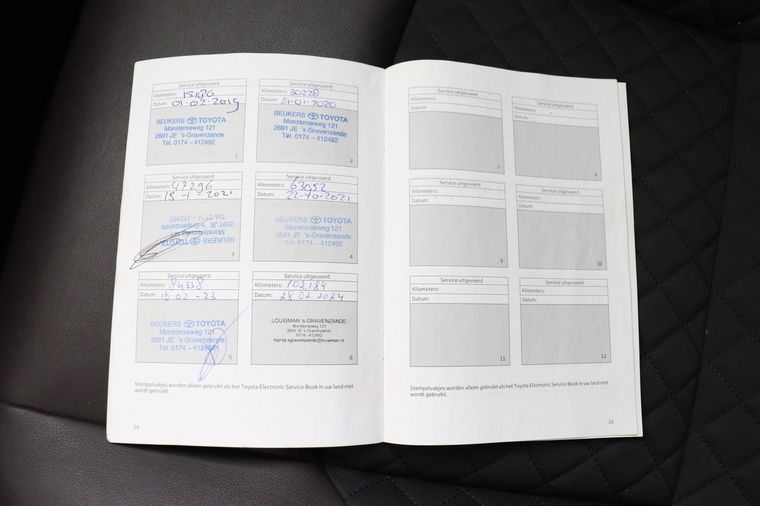 Service uitgevoerd
Kilometers: 15186
Datum: 01-02-2019
BEUKERS TOYOTA
Monsterseweg 121
2691 JE 's-Gravenzande
Tel. 0174 - 412492
1
Service uitgevoerd
Kilometers: 30228
Datum: 21-01-2020
BEUKERS TOYOTA
Monsterseweg 121
2691 JE 's-Gravenzande
Tel. 0174 - 412492
2
Service uitgevoerd
Kilometers: 47296
Datum: 15-1-2021
BEUKERS TOYOTA
Monsterseweg
2691 JE 's-Gravenzande
Tel. 0174 - 412492
3
Service uitgevoerd
Kilometers: 63052
Datum: 22-10-2021
BEUKERS TOYOTA
Monsterseweg 121
2691 JE 's-Gravenzande
Tel. 0174 - 412492
4
Service uitgevoerd
Kilometers: 84538
Datum: -02-23
BEUKERS TOYOTA
Monsterseweg 121
2691 JE 's-Gravenzande
Tel. 0174 - 412492
5
Service uitgevoerd
Kilometers: 102184
Datum: 28 02 2024
LOUWMAN 's-GRAVENZANDE
Monsterseweg 121
2691 JE 's-Gravenzande
0174 - 412492
toyota.sgravenzande@louwman.nl
6
Stempelvakjes worden alleen gebruikt als het Toyota Electronic Service Book in uw land niet
wordt gebruikt.
24
Service uitgevoerd
Kilometers:
Datum:
7
Service uitgevoerd
Kilometers:
Datum:
8
Service uitgevoerd
Kilometers:
Datum:
9
Service uitgevoerd
Kilometers:
Datum:
10
Service uitgevoerd
Kilometers:
Datum:
11
Service uitgevoerd
Kilometers:
Datum:
12
Stempelvakjes worden alleen gebruikt als het Toyota Electronic Service Book in uw land niet
wordt gebruikt.
25